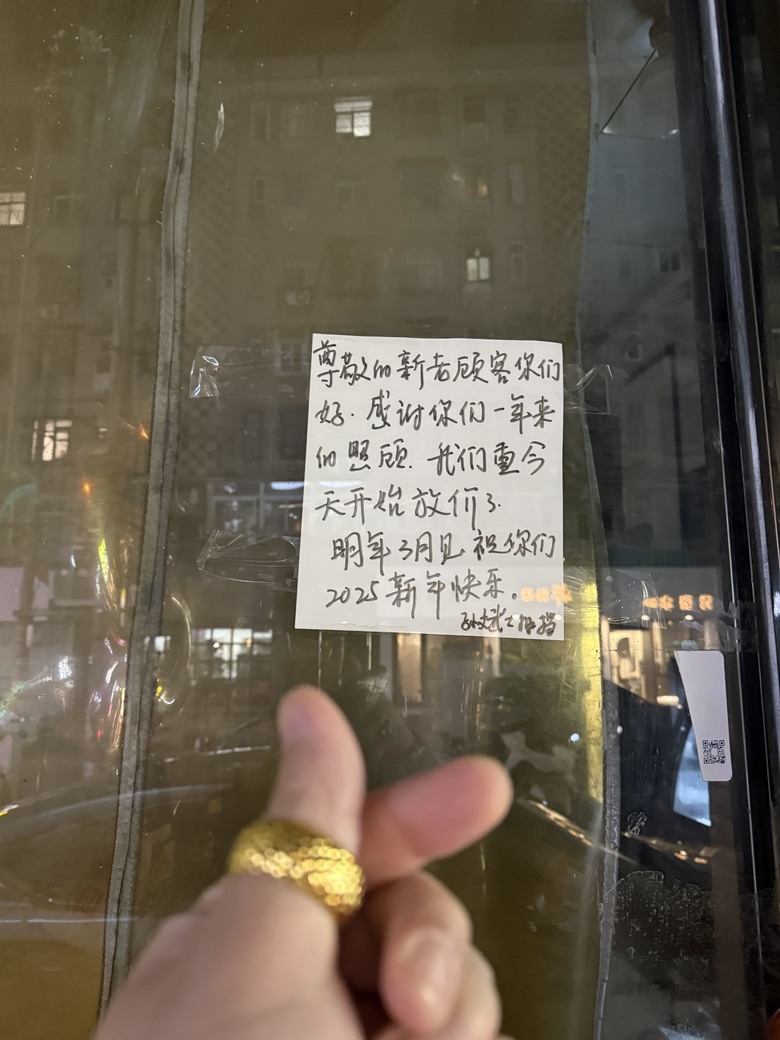 尊敬的新老顾客你们
好.感谢你们一年来
的照顾.我们重今
天开始放价了.
明年3月见祝你们
2025新年快乐.